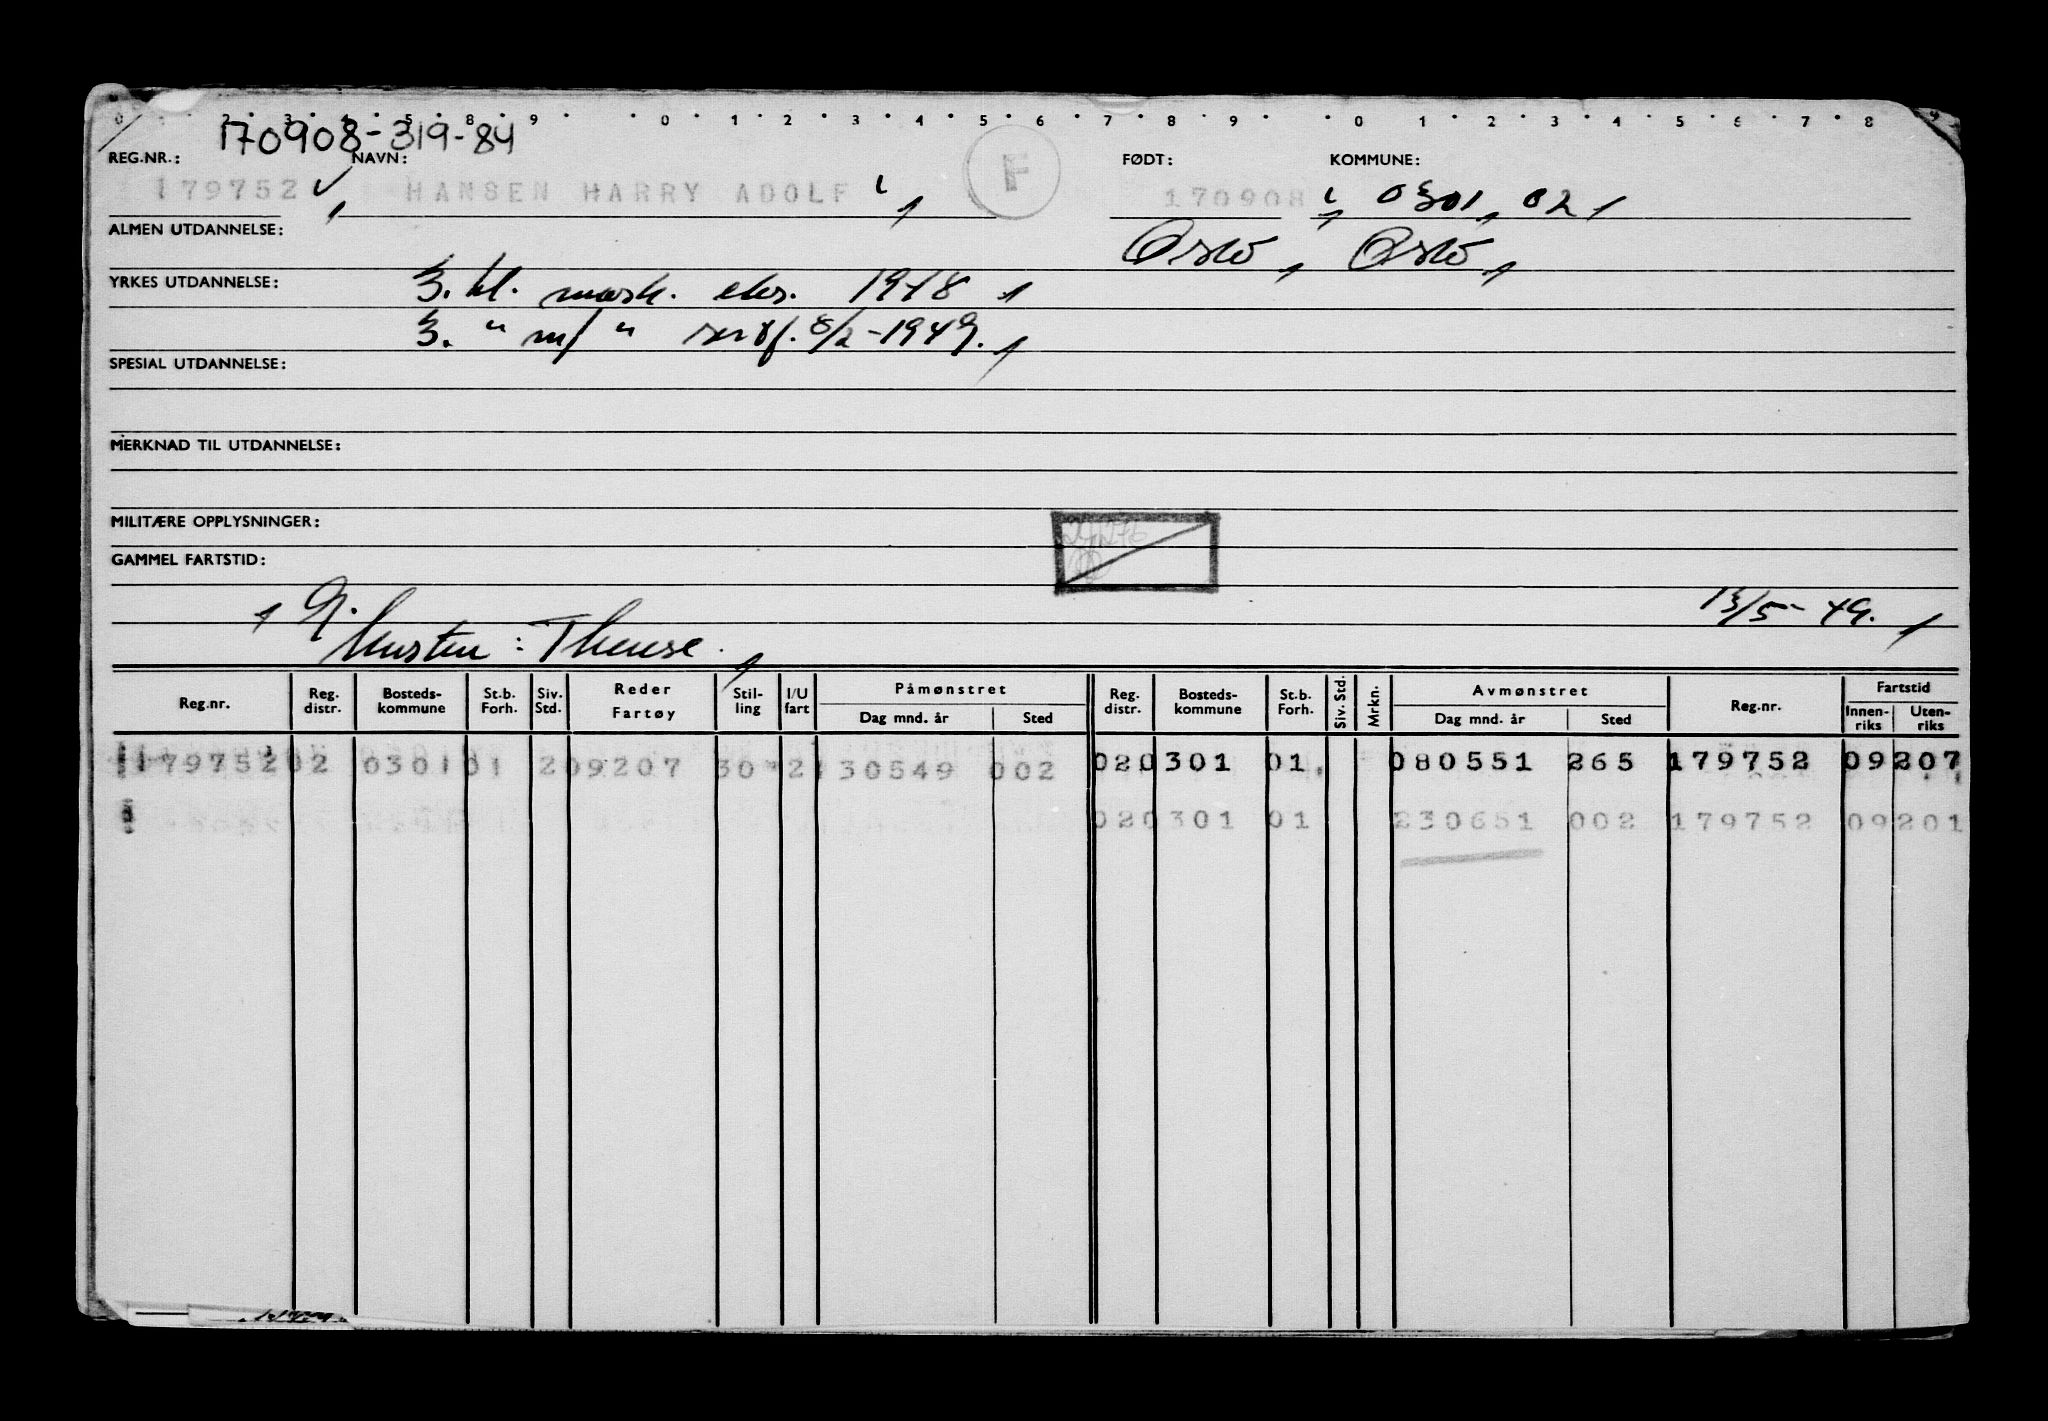 170908-319-84
REG.NR.: NAVN: FØDT: KOMMUNE:
179752 HANSEN HARRY ADOLF F 170908 0301, 02
ALMEN UTDANNELSE: Oslo, Oslo,
YRKES UTDANNELSE: 3. kl. mask. eks. 1948
3. " m/ " sertf. 8/2-1949.
SPESIAL UTDANNELSE:
MERKNAD TIL UTDANNELSE:
MILITÆRE OPPLYSNINGER:
GAMMEL FARTSTID:
G. 13/5-49.
Kirsten: Therese.
Reg.nr. Reg. distr. Bosteds-kommune St.b. Forh. Siv. Std. Reder Fartøy Stil-ling I/U fart Påmønstret Dag mnd. år Sted Reg. distr. Bosteds-kommune St.b. Forh. Siv. Std. Mrkn. Avmønstret Dag mnd. år Sted Reg.nr. Fartstid Innen-riks Uten-riks
179752 02 0301 01 2 09207 30 2 130549 002 02 0301 01 080551 265 179752 09207
02 0301 01 230651 002 179752 09201